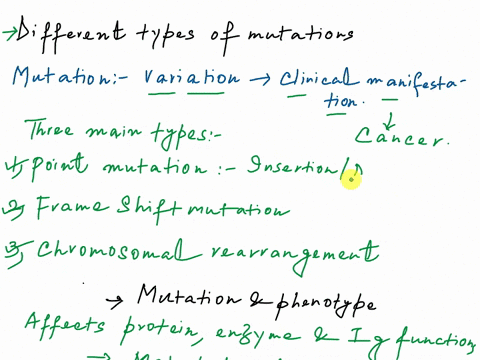 →Different types of mutations
Mutation:- variation → clinical manifesta-
tion.
Cancer.
Three main types:-
1) Point mutation :- Insertion/
2) Frame Shift mutation
3) Chromosomal rearrangement
→ Mutation & phenotype
Affects protein, enzyme & Ig function,